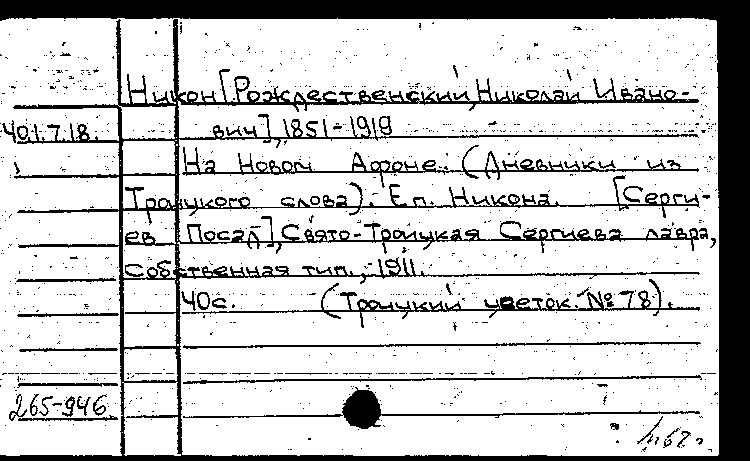 Никон [Рождественский, Николай Ивано-
40.1.7.18. вич], 1851-1919
На Новом Афоне. (Дневники из
Троицкого слова). Еп. Никона. [Серги-
ев Посад], Свято-Троицкая Сергиева лавра,
Собственная тип., 1911.
40с. (Троицкий цветок. № 78).
265-946